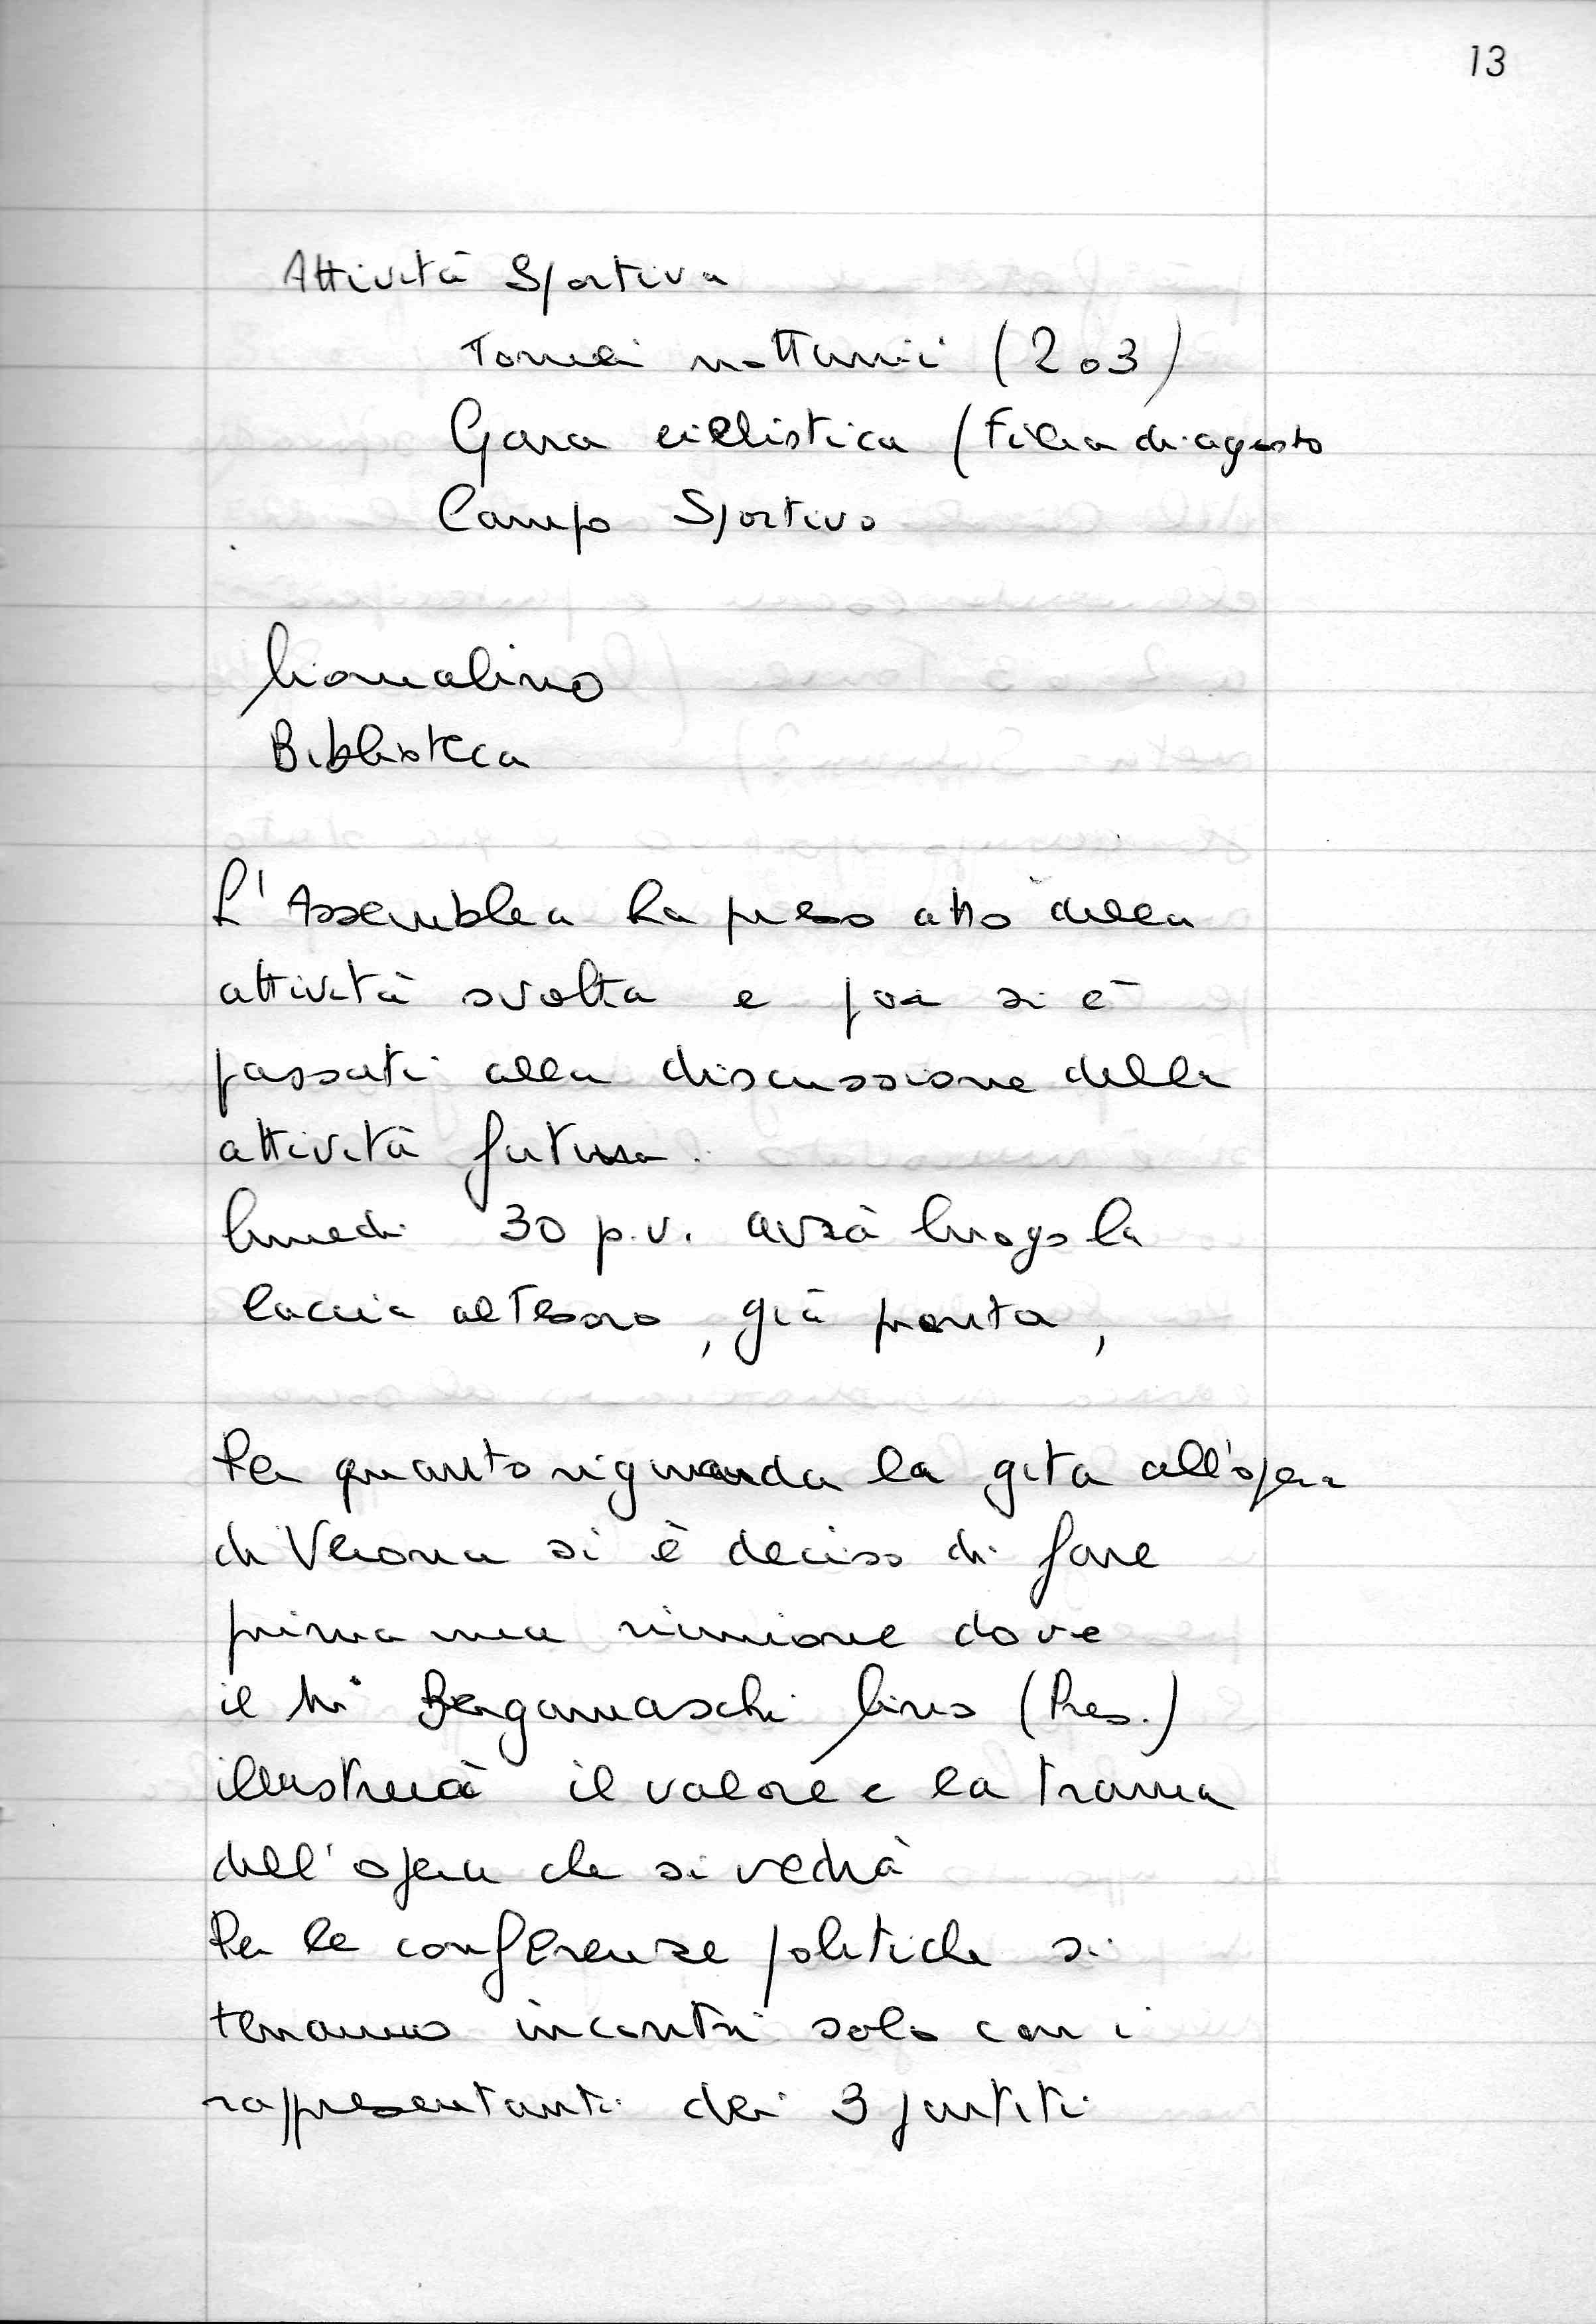 13
Attività Sportiva
Tornei notturni (2 o 3)
Gara ciclistica (Fiera di agosto
Campo Sportivo
Giornalino
Biblioteca
L'Assemblea ha preso atto della
attività svolta e poi si è
passati alla discussione della
attività futura.
lunedi 30 p.v. avrà luogo la
caccia al Tesoro, già pronta,
Per quanto riguarda la gita all'opera
di Verona si è deciso di fare
prima una riunione dove
il Bergamaschi Lino (Pres.)
illustrerà il valore e la trama
dell'opera che si vedrà
Per le conferenze politiche si
terranno incontri solo con i
rappresentanti dei 3 partiti